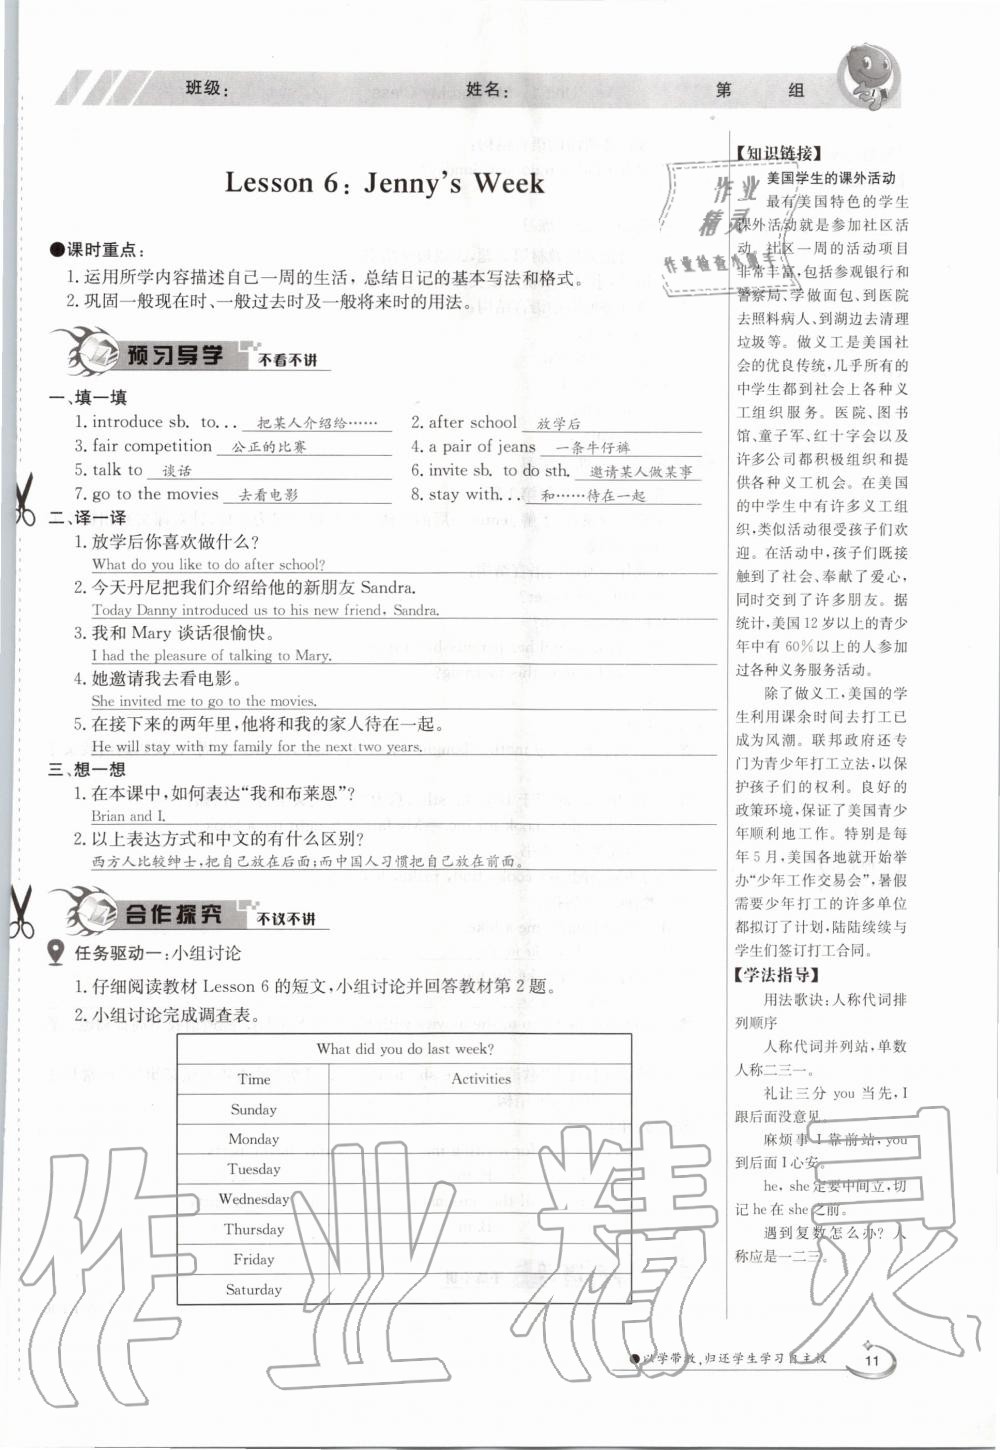 班级：　姓名：　第　组
Lesson 6：Jenny's Week
●课时重点：
1. 运用所学内容描述自己一周的生活，总结日记的基本写法和格式。
2. 巩固一般现在时、一般过去时及一般将来时的用法。
预习导学 不看不讲
一、填一填
1. introduce sb. to... 把某人介绍给……　2. after school 放学后
3. fair competition 公正的比赛　4. a pair of jeans 一条牛仔裤
5. talk to 谈话　6. invite sb. to do sth. 邀请某人做某事
7. go to the movies 去看电影　8. stay with... 和……待在一起
二、译一译
1. 放学后你喜欢做什么？
What do you like to do after school?
2. 今天丹尼把我们介绍给他的新朋友 Sandra.
Today Danny introduced us to his new friend, Sandra.
3. 我和 Mary 谈话很愉快。
I had the pleasure of talking to Mary.
4. 她邀请我去看电影。
She invited me to go to the movies.
5. 在接下来的两年里，他将和我的家人待在一起。
He will stay with my family for the next two years.
三、想一想
1. 在本课中，如何表达“我和布莱恩”？
Brian and I.
2. 以上表达方式和中文的有什么区别？
西方人比较绅士，把自己放在后面；而中国人习惯把自己放在前面。
合作探究 不议不讲
任务驱动一：小组讨论
1. 仔细阅读教材 Lesson 6 的短文，小组讨论并回答教材第 2 题。
2. 小组讨论完成调查表。
What did you do last week?
Time　Activities
Sunday
Monday
Tuesday
Wednesday
Thursday
Friday
Saturday
【知识链接】
美国学生的课外活动
最有美国特色的学生
课外活动就是参加社区活
动。社区一周的活动项目
非常丰富，包括参观银行和
警察局、学做面包、到医院
去照料病人、到湖边去清理
垃圾等。做义工是美国社
会的优良传统，几乎所有的
中学生都到社会上各种义
工组织服务。医院、图书
馆、童子军、红十字会以及
许多公司都积极组织和提
供各种义工机会。在美国
的中学生中有许多义工组
织，类似活动很受孩子们欢
迎。在活动中，孩子们既接
触到了社会、奉献了爱心，
同时交到了许多朋友。据
统计，美国 12 岁以上的青少
年中有 60%以上的人参加
过各种义务服务活动。
除了做义工，美国的学
生利用课余时间去打工已
成为风潮。联邦政府还专
门为青少年打工立法，以保
护孩子们的权利。良好的
政策环境，保证了美国青少
年顺利地工作。特别是每
年 5 月，美国各地就开始举
办“少年工作交易会”，暑假
需要少年打工的许多单位
都拟订了计划，陆陆续续与
学生们签订打工合同。
【学法指导】
用法歌诀：人称代词排
列顺序
人称代词并列站，单数
人称二三一。
礼让三分 you 当先，I
跟后面没意见。
麻烦事 I 靠前站，you
到后面 I 心安。
he，she 定要中间立，切
记 he 在 she 之前。
遇到复数怎么办？人
称应是一二三。
以学带教，归还学生学习自主权
11
作业
精灵
作业检查小帮手
作业精灵